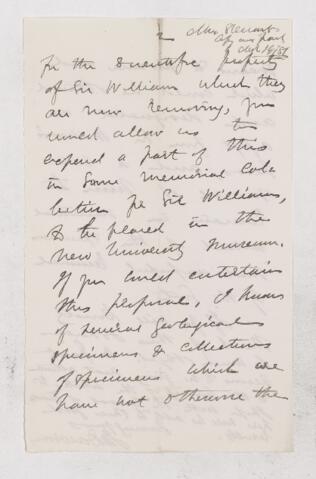 2
Mrs Stewart
for the scientific property
of Sir William which they
are now removing, you
would allow us to
expend a part of this
in some memorial cola
bection for Sir Williams,
to be placed in the
new University Museum.
If you could entertain
this proposal, I know
of several geological
specimens & collections
of specimens which we
have not otherwise the